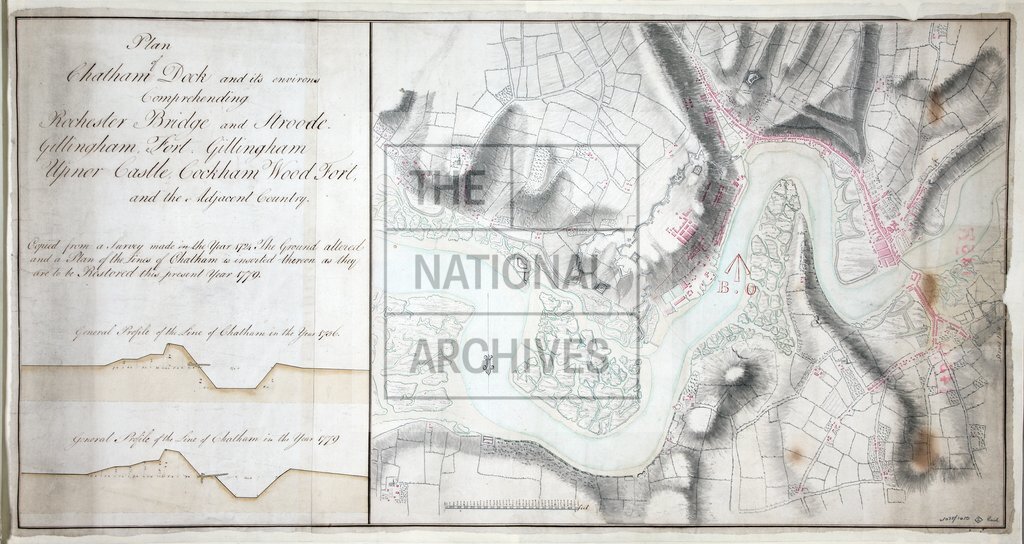 Plan
of
Chatham Dock and its environs
Comprehending
Rochester Bridge and Stroode.
Gillingham, Fort Gillingham
Upnor Castle, Cockham Wood Fort,
and the Adjacent Country.
Copied from a Survey made in the Year 1724 The Ground altered
and a Plan of the Lines of Chatham is inserted thereon as they
are to be Restored this present Year 1779.
General Profile of the Line of Chatham in the Year 1756.
General Profile of the Line of Chatham in the Year 1779
THE
NATIONAL
ARCHIVES
B.O